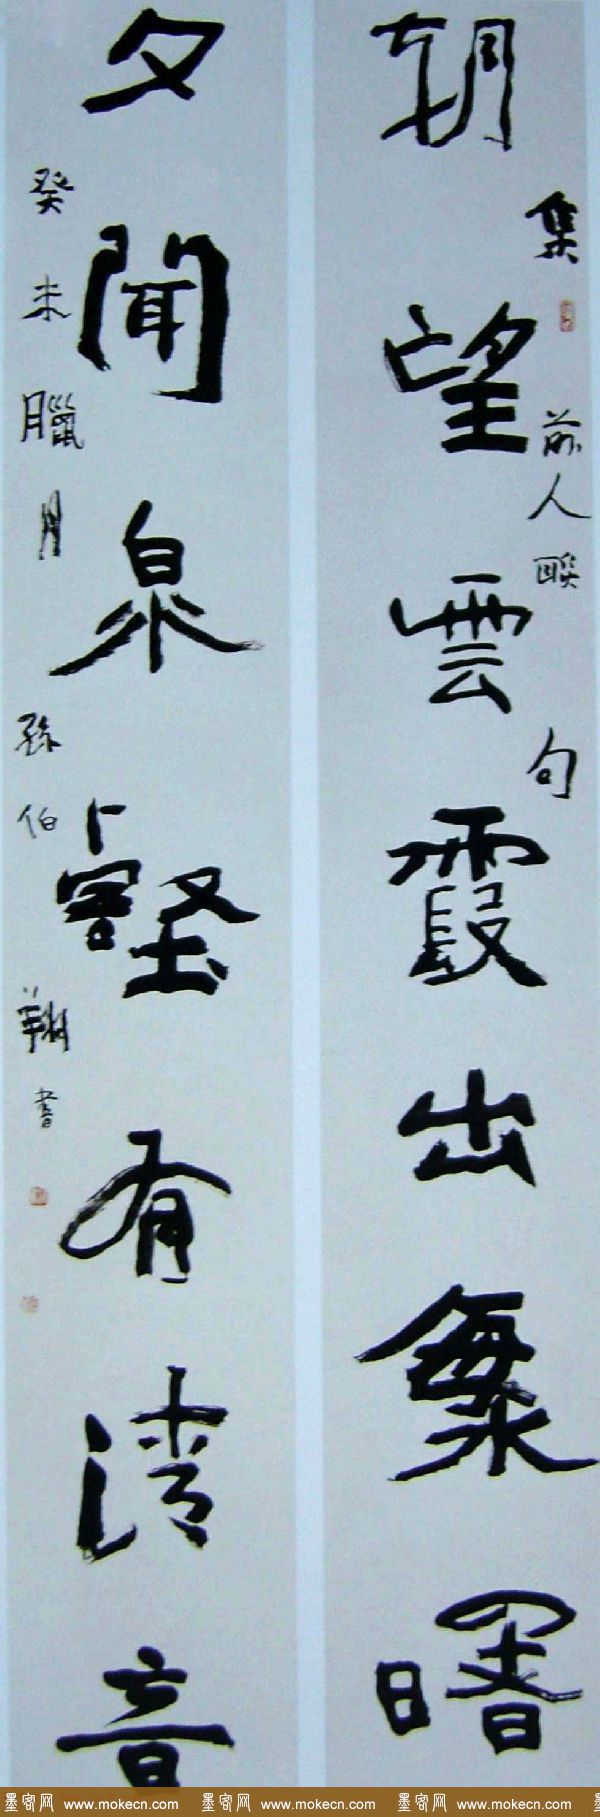 朝望雲霞出曙
集前人聯句
夕聞泉壑有清音
癸未臘月孫伯翔書
墨客网 www.mokecn.com 墨客网 www.mokecn.com 墨客网 www.mokecn.com